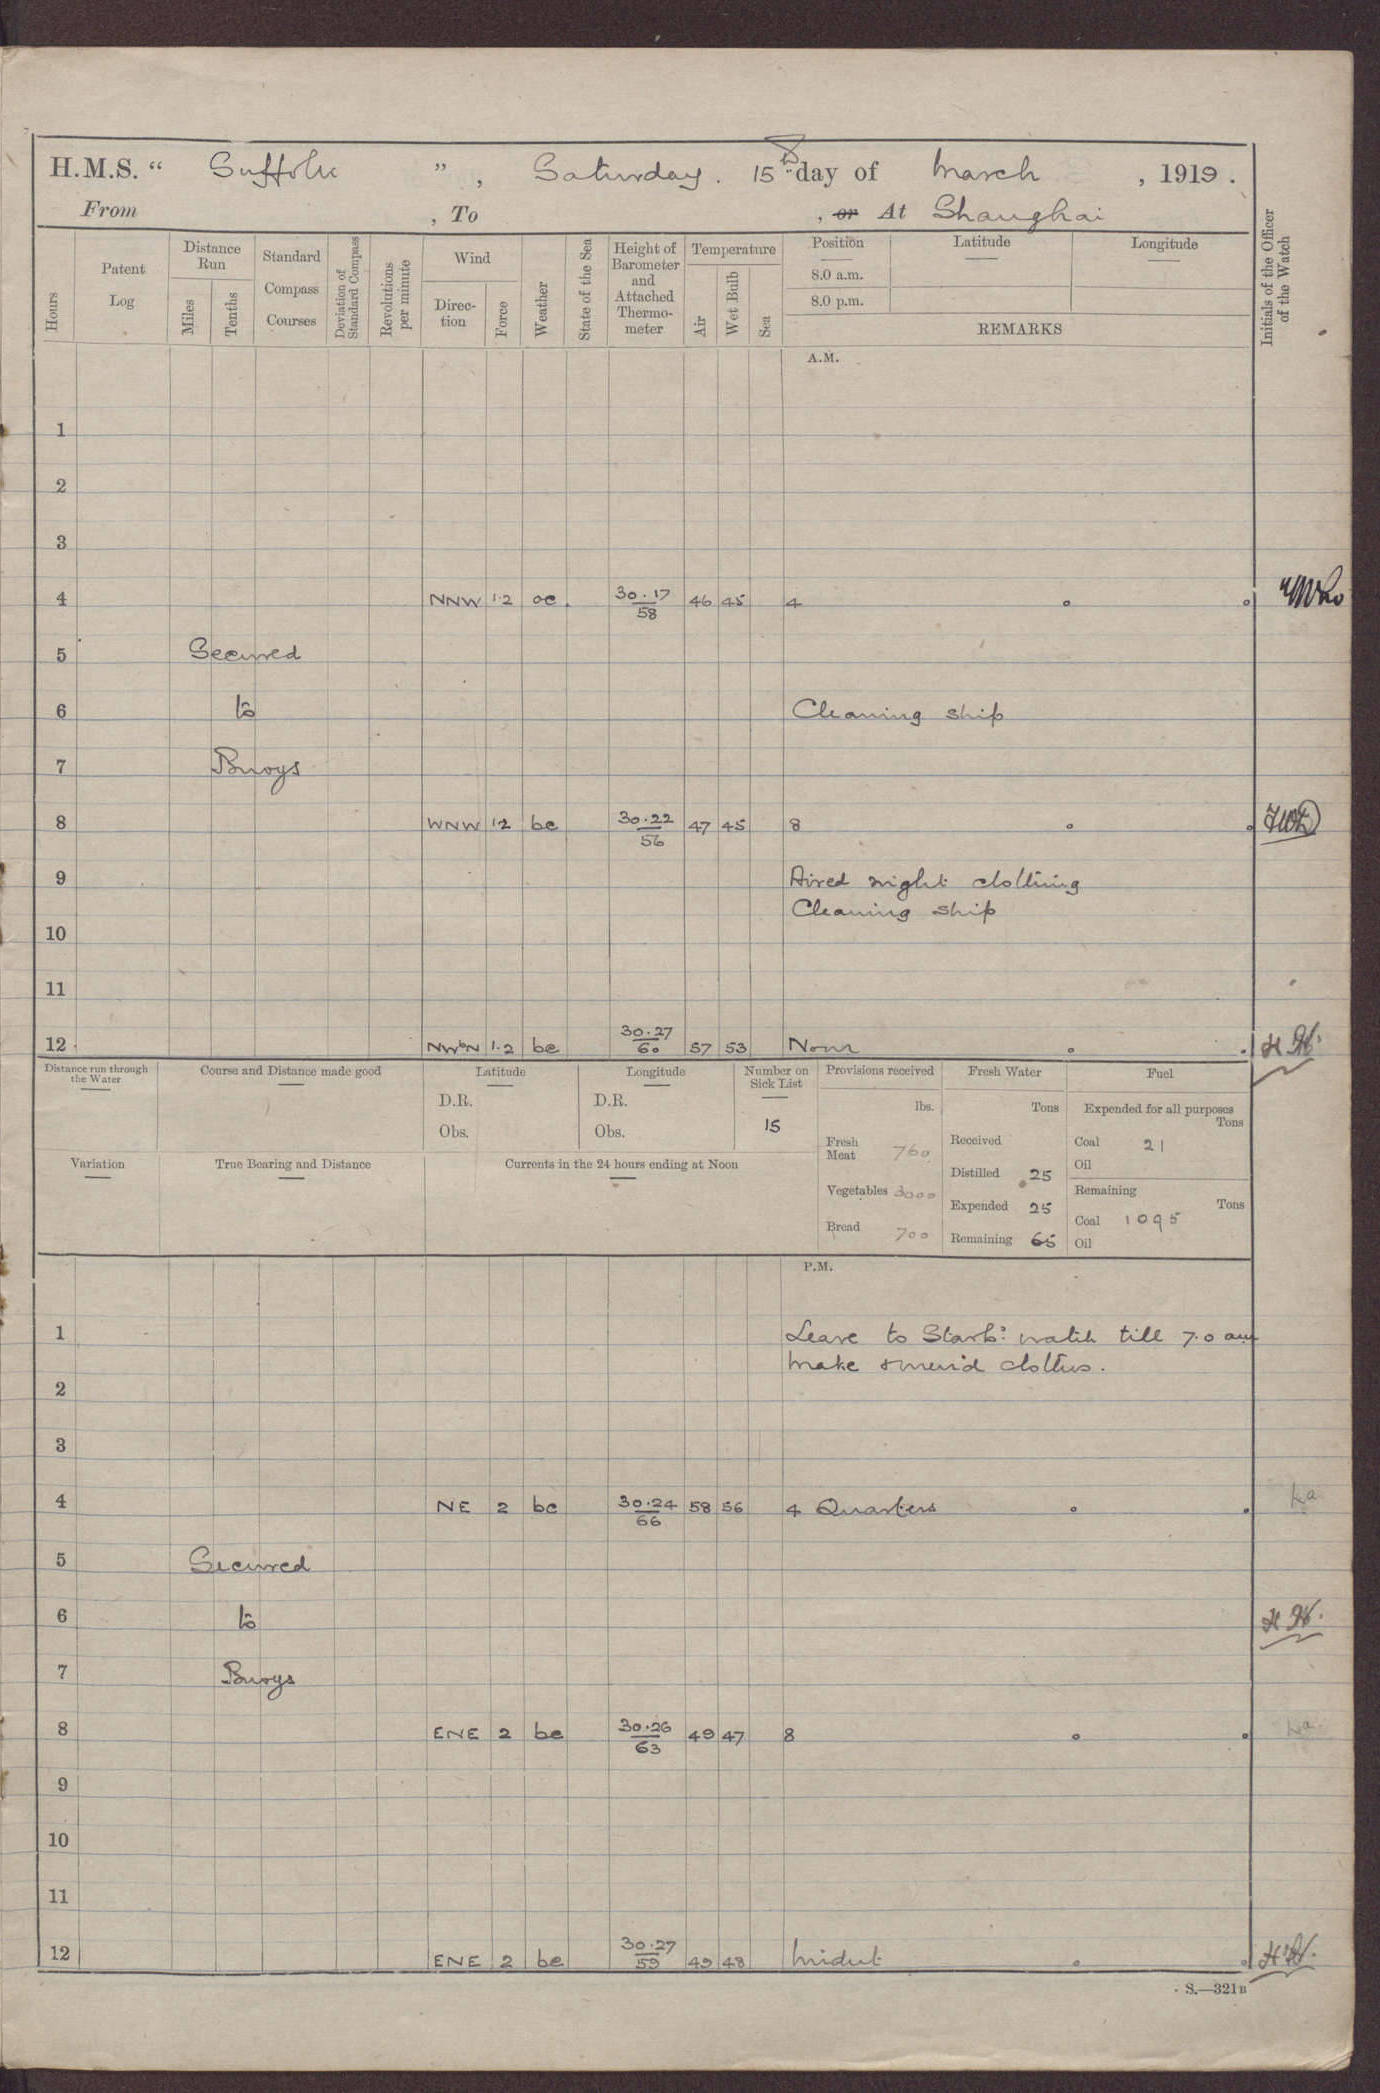 H.M.S. “ Suffolk ” , Saturday. 15th day of March , 1919 .
From , To , or At Shanghai
Hours
Patent Log
Distance Run
Miles
Tenths
Standard Compass Courses
Deviation of Standard Compass
Revolutions per minute
Wind
Direc-tion
Force
Weather
State of the Sea
Height of Barometer and Attached Thermo-meter
Temperature
Air
Wet Bulb
Sea
Position Latitude Longitude
8.0 a.m.
8.0 p.m.
REMARKS
Initials of the Officer of the Watch
A.M.
1
2
3
4 NNW 1·2 oc. 30.17/58 46 45 4
5 Secured
6 to Cleaning ship
7 Buoys
8 WNW 1·2 bc 30.22/56 47 45 8
9 Aired night clothing
Cleaning ship
10
11
12 NWbN 1·2 bc 30.27/60 57 53 Noon H.W.
Distance run through the Water
Course and Distance made good
Latitude
D.R.
Obs.
Longitude
D.R.
Obs.
Number on Sick List
15
Variation
True Bearing and Distance
Currents in the 24 hours ending at Noon
Provisions received
lbs.
Fresh Meat 760
Vegetables 3000
Bread 700
Fresh Water
Tons
Received
Distilled 25
Expended 25
Remaining 65
Fuel
Expended for all purposes
Tons
Coal 21
Oil
Remaining
Tons
Coal 1095
Oil
P.M.
1 Leave to Starbd: watch till 7.0 am
make & mend clothes.
2
3
4 NE 2 bc 30.24/66 58 56 4 Quarters
5 Secured
6 to H.W.
7 Buoys
8 ENE 2 bc 30.26/63 49 47 8
9
10
11
12 ENE 2 bc 30.27/59 49 48 Midnt H.W.
S.—321B